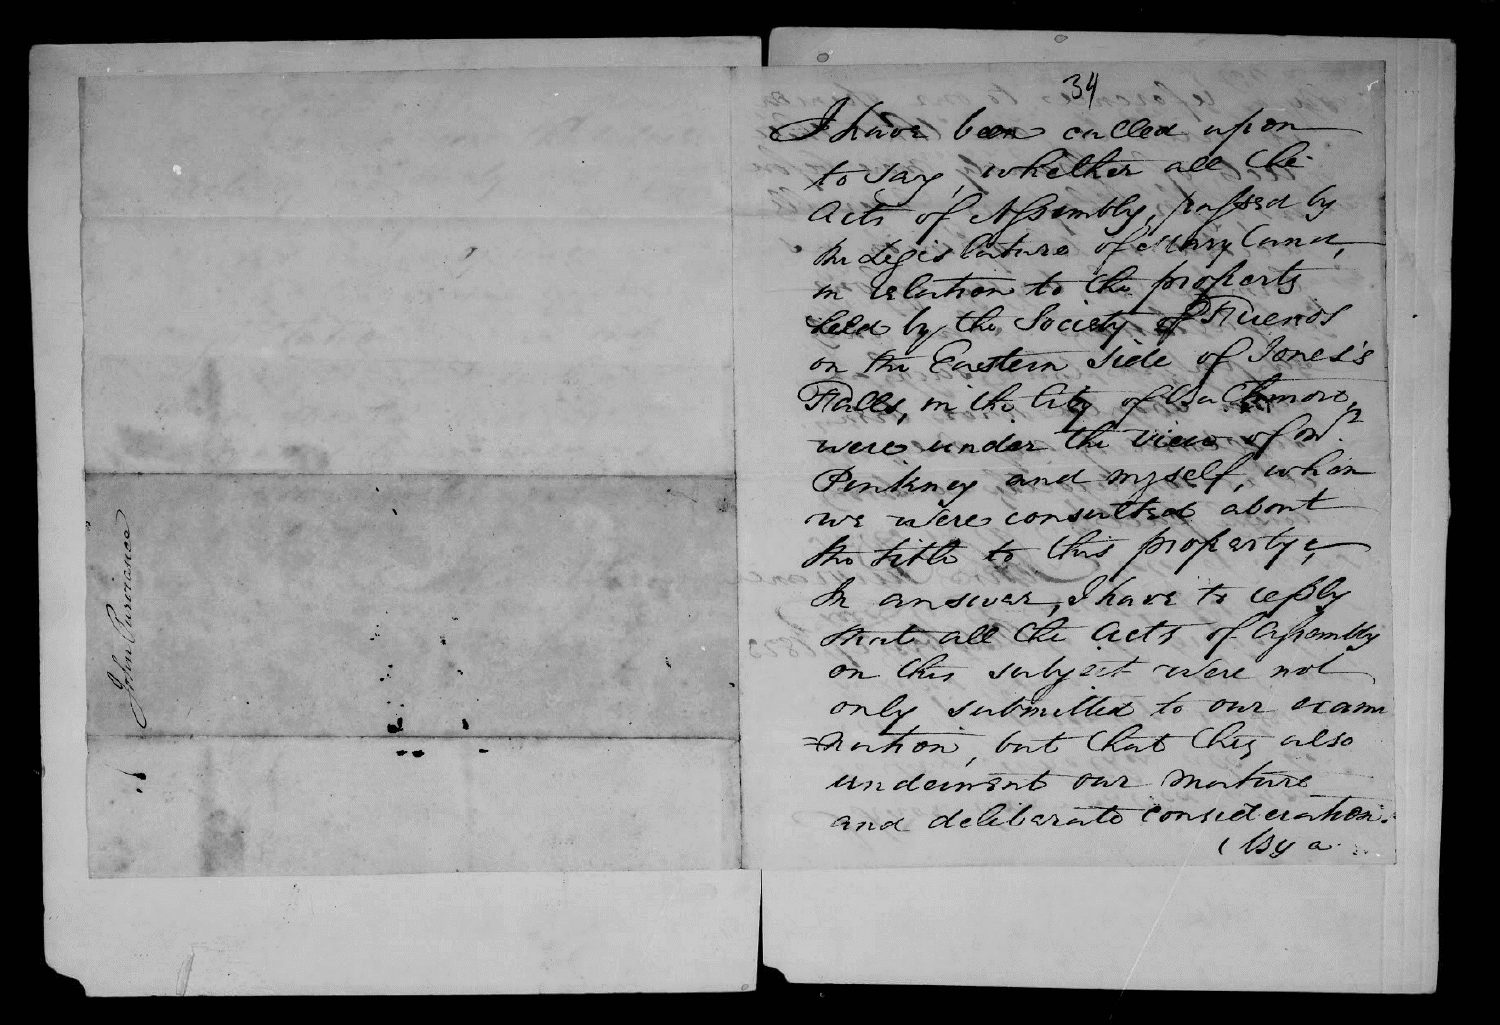 John Purviance
34
I have been called upon
to say, whether all the
Acts of Assembly, passed by
the Legislature of Maryland,
in relation to the property
held by the Society of Friends
on the Eastern side of Jones's
Falls, in the City of Baltimore,
were under the view of Mr.
Pinkney and myself, when
we were consulted about
the title to this property,
In answer, I have to reply
that all the Acts of Assembly
on this subject were not
only submitted to our exami
=nation, but that they also
underwent our mature
and deliberate consideration.
By a